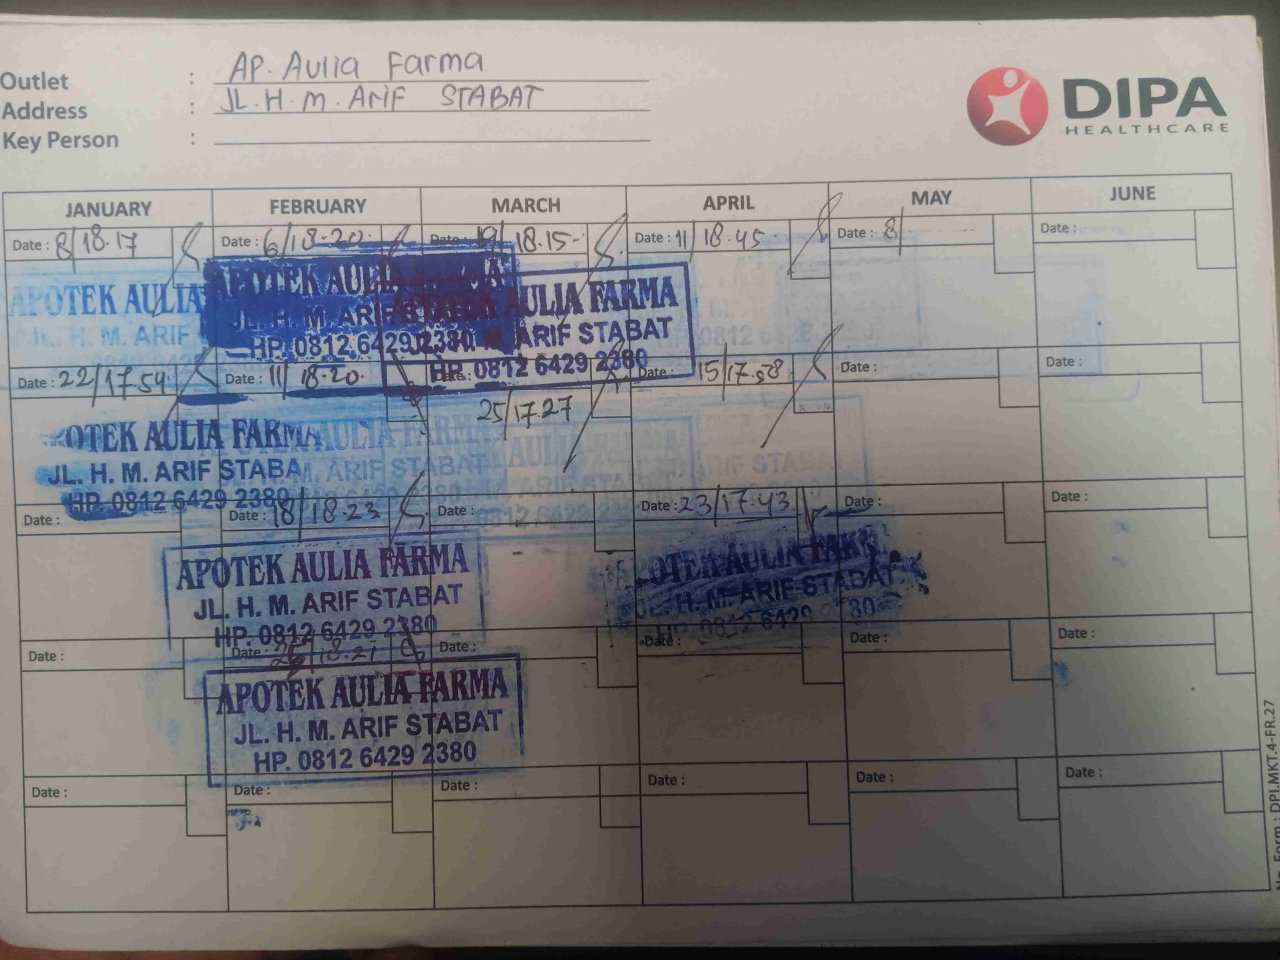 Outlet : AP. Aulia Farma
Address : JL. H. M. Arif STABAT
Key Person :
DIPA
HEALTHCARE
JANUARY FEBRUARY MARCH APRIL MAY JUNE
Date : 8/18.17 Date : 6/18.20 Date : 19/18.15 Date : 11/18.45 Date : 8/ Date :
APOTEK AULIA
JL. H. M. ARIF
APOTEK AULIA
JL. H. M. ARIF
HP. 0812 6429 2380
AULIA FARMA
ARIF STABAT
HP. 0812 6429 2380
Date : 22/17.54 Date : 11/18.20 Date : 25/17.27 Date : 15/17.58 Date : Date :
OTEK AULIA FARMA
JL. H. M. ARIF STABA
HP. 0812 6429 2380
Date : Date : 18/18.23 Date : Date : 23/17.43 Date : Date :
APOTEK AULIA FARMA
JL. H. M. ARIF STABAT
HP. 0812 6429 2380
OTEK AULIA FAR
JL. H. M. ARIF STABAT
HP. 0812 6429 2380
Date : Date : 18.21 Date : Date : Date : Date :
APOTEK AULIA FARMA
JL. H. M. ARIF STABAT
HP. 0812 6429 2380
Date : Date : Date : Date : Date : Date :
No. Form : DPI.MKT.4-FR.27